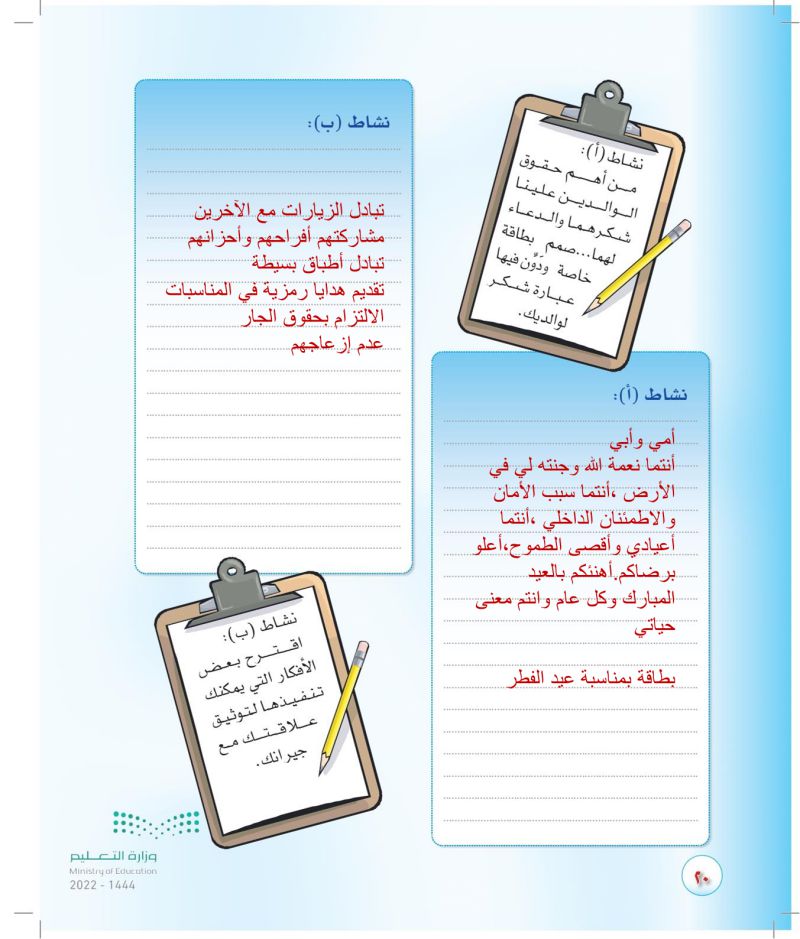 نشاط (أ):
من أهم حقوق
الوالدين علينا
شكرهما والدعاء
لهما...صمم بطاقة
خاصة ودَوِّن فيها
عبارة شكر
لوالديك.
نشاط (أ):
أمي وأبي
أنتما نعمة الله وجنته لي في
الأرض ،أنتما سبب الأمان
والاطمئنان الداخلي ،أنتما
أعيادي وأقصى الطموح،أعلو
برضاكم.أهنئكم بالعيد
المبارك وكل عام وانتم معنى
حياتي
بطاقة بمناسبة عيد الفطر
نشاط (ب):
تبادل الزيارات مع الآخرين
مشاركتهم أفراحهم وأحزانهم
تبادل أطباق بسيطة
تقديم هدايا رمزية في المناسبات
الالتزام بحقوق الجار
عدم إزعاجهم
نشاط (ب):
اقترح بعض
الأفكار التي يمكنك
تنفيذها لتوثيق
علاقتك مع
جيرانك.
وزارة التعليم
Ministry of Education
2022 - 1444
٢٠